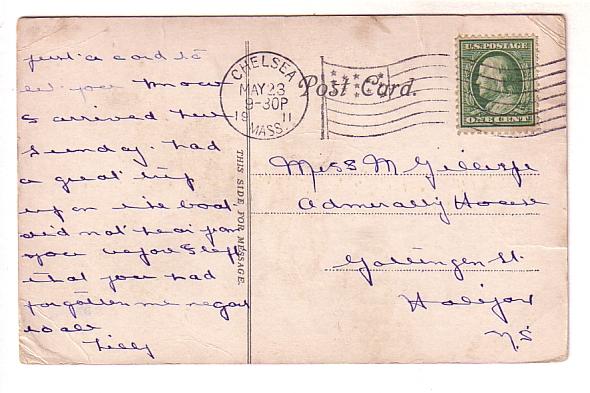 just a card to
let you know
I arrived here
Sunday. had
a great trip
up on the boat
did not hear from
you before I left
that you had
forgotten me regards
to all
Lilly
THIS SIDE FOR MESSAGE.
CHELSEA
MAY 23
9-30P
19 11
MASS.
Post Card.
U.S. POSTAGE
ONE CENT
Miss M Gillespie
Admeralty House
Gottingen St.
Halifax
N.S